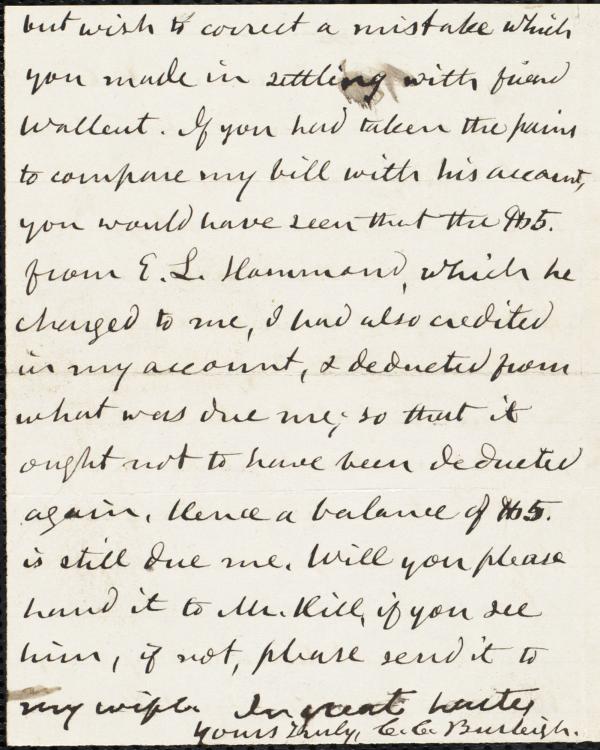 but wish to correct a mistake which
you made in settling with friend
Wallcut. If you had taken the pains
to compare my bill with his account,
you would have seen that the $5.
from E. L. Hammond, which he
charged to me, I had also credited
in my account, & deducted from
what was due me; so that it
ought not to have been deducted
again. Hence a balance of $5.
is still due me. Will you please
hand it to Mr. Hill, if you see
him, if not, please send it to
my wife. In great haste,
Yours Truly, C. C. Burleigh.